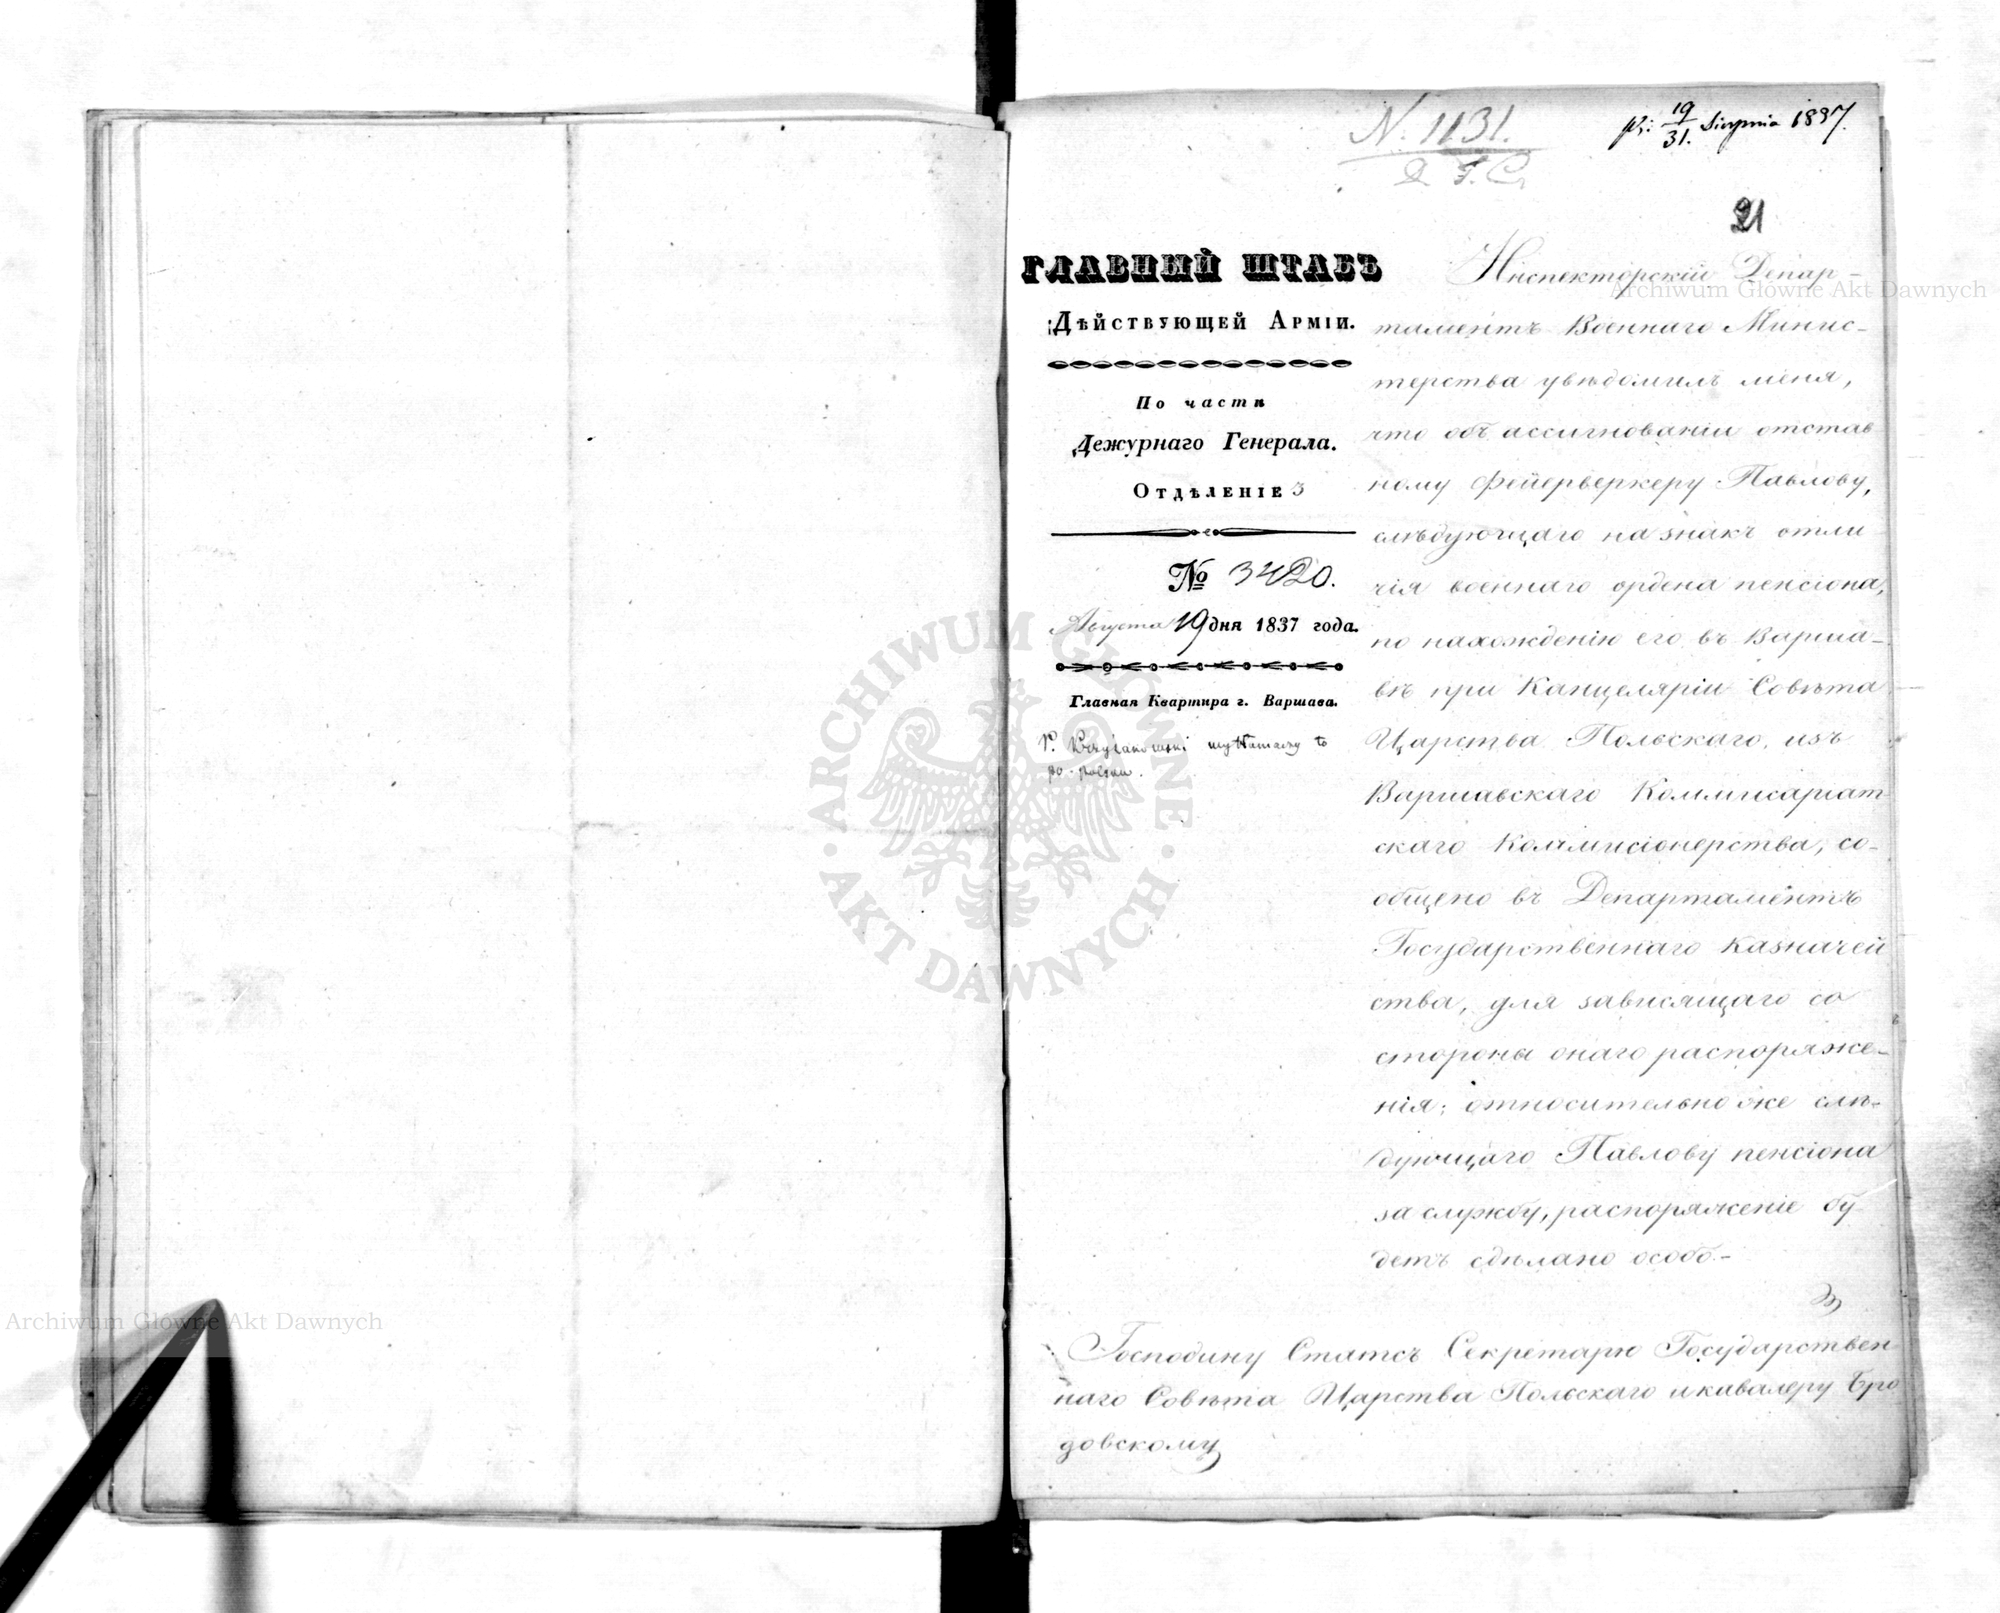 N. 1131.
D. T. C.
pr: 19/31. Sierpnia 1837.
21
ГЛАВНЫЙ ШТАБЪ
ДѢЙСТВУЮЩЕЙ АРМІИ.
По части
Дежурнаго Генерала.
ОТДѢЛЕНІЕ 3
№ 3420.
Августа 19 дня 1837 года.
Главная Квартира г. Варшава.
to
po polsku.
Инспекторскій Депар-
таментъ Военнаго Минис-
терства увѣдомилъ меня,
что объ ассигнованіи отстав
ному фейерверкеру Павлову,
слѣдующаго на знакъ отли
чія военнаго ордена пенсіона,
по нахожденію его въ Варша-
вѣ при Канцеляріи Совѣта
Царства Польскаго, изъ
Варшавскаго Коммисаріат
скаго Коммисіонерства, со-
общено въ Департаментъ
Государственнаго Казначей
ства, для зависящаго со
стороны онаго распоряже-
нія; относительно же слѣ-
дующаго Павлову пенсіона
за службу, распоряженіе бу
детъ сдѣлано особо.-
Господину Статсъ Секретарю Государствен
наго Совѣта Царства Польскаго и кавалеру Бро
довскому
Archiwum Główne Akt Dawnych
Archiwum Główne Akt Dawnych
ARCHIWUM GŁÓWNE · AKT DAWNYCH ·